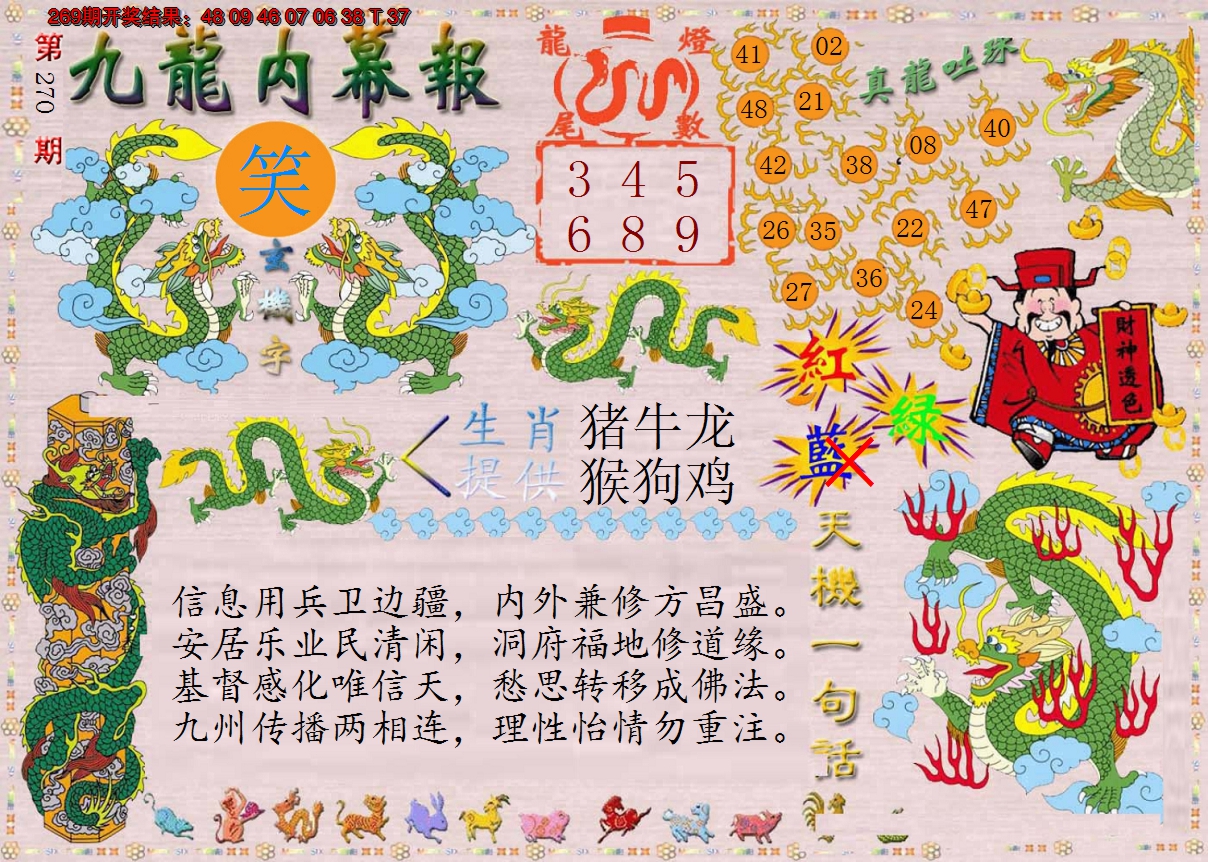 269期开奖结果：48 09 46 07 06 38 T 37
第270期
九龍内幕報
笑
玄機字
龍燈
尾數
3 4 5
6 8 9
真龍吐珠
41 02
48 21
42 38 08 40
26 35 22 47
27 36 24
財神透色
紅
綠
藍
生肖 猪牛龙
提供 猴狗鸡
天機一句话
信息用兵卫边疆，内外兼修方昌盛。
安居乐业民清闲，洞府福地修道缘。
基督感化唯信天，愁思转移成佛法。
九州传播两相连，理性怡情勿重注。